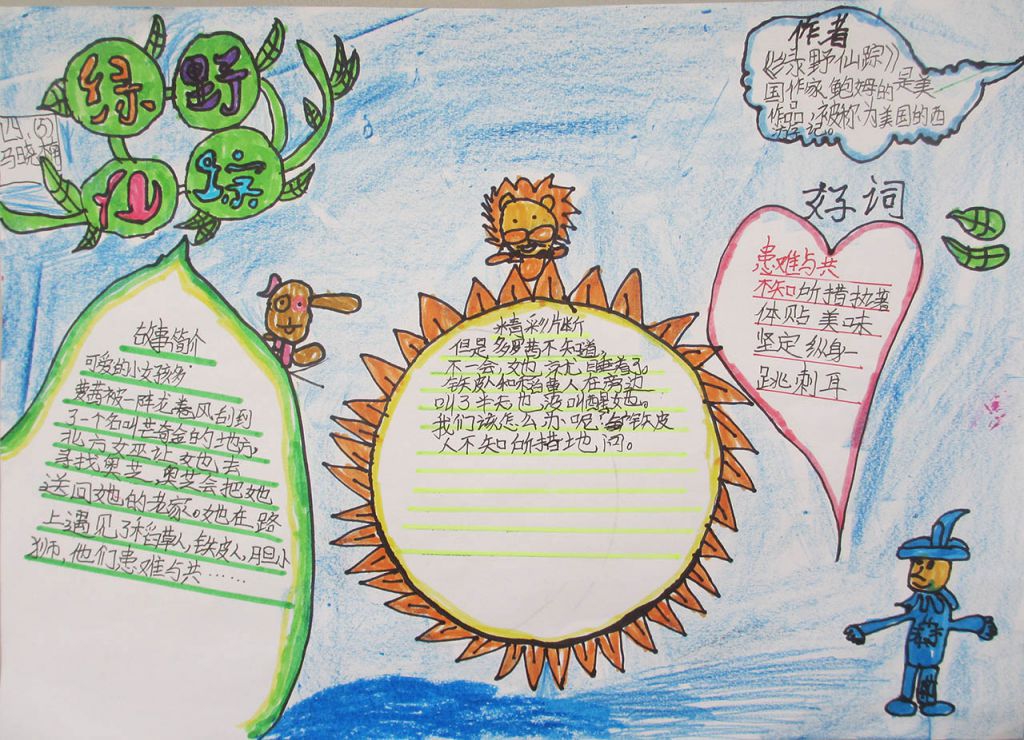 绿野
仙踪
四（5）
马晓
作者
《绿野仙踪》
是美
国作家鲍姆的
作品，被称为美国的西
游记。
好词
患难与共
不知所措 执著
体贴 美味
坚定 纵身一
跳 刺耳
故事简介
可爱的小女孩多
萝茜被一阵龙卷风刮到
了一个名叫芒奇金的地方，
北方女巫让她去
寻找奥芝，奥芝会把她
送回她的老家。她在路
上遇见了稻草人，铁皮人，胆小
狮，他们患难与共……
精彩片断
但是多罗茜不知道，
不一会，她就睡着了
铁皮人和稻草人在旁边
叫了半天也没叫醒她。
我们该怎么办呢？铁皮
人不知所措地问。